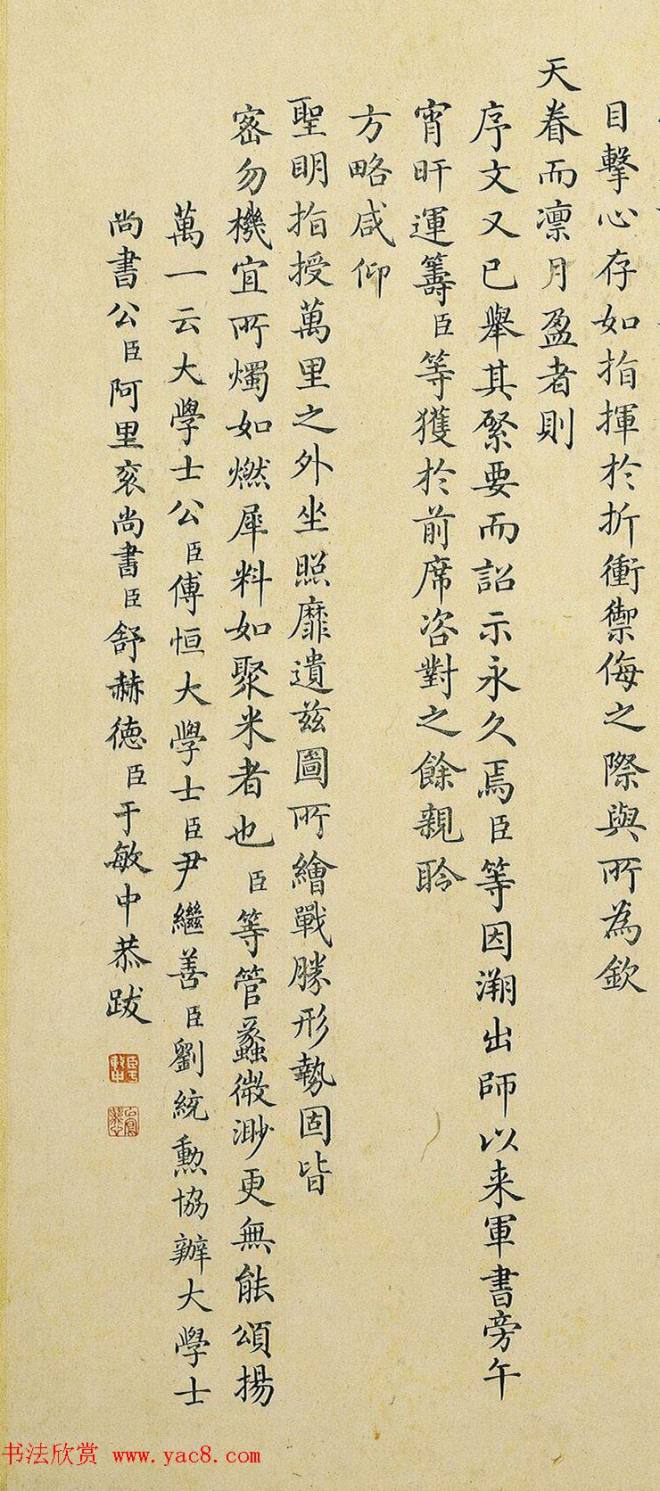 目擊心存如指揮於折衝禦侮之際與所為欽
天眷而凛月盈者則
序文又已舉其緊要而詔示永久焉臣等因溯出師以来軍書旁午
宵旰運籌臣等獲於前席咨對之餘親聆
方略咸仰
聖明指授萬里之外坐照靡遺兹圖所繪戰勝形勢固皆
宻勿機宜所燭如燃犀料如聚米者也臣等管蠡微渺更無能頌揚
萬一云大學士公臣傅恒大學士臣尹繼善臣劉統勲協辦大學士
尚書公臣阿里衮尚書臣舒赫德臣于敏中恭跋
书法欣赏 www.yac8.com